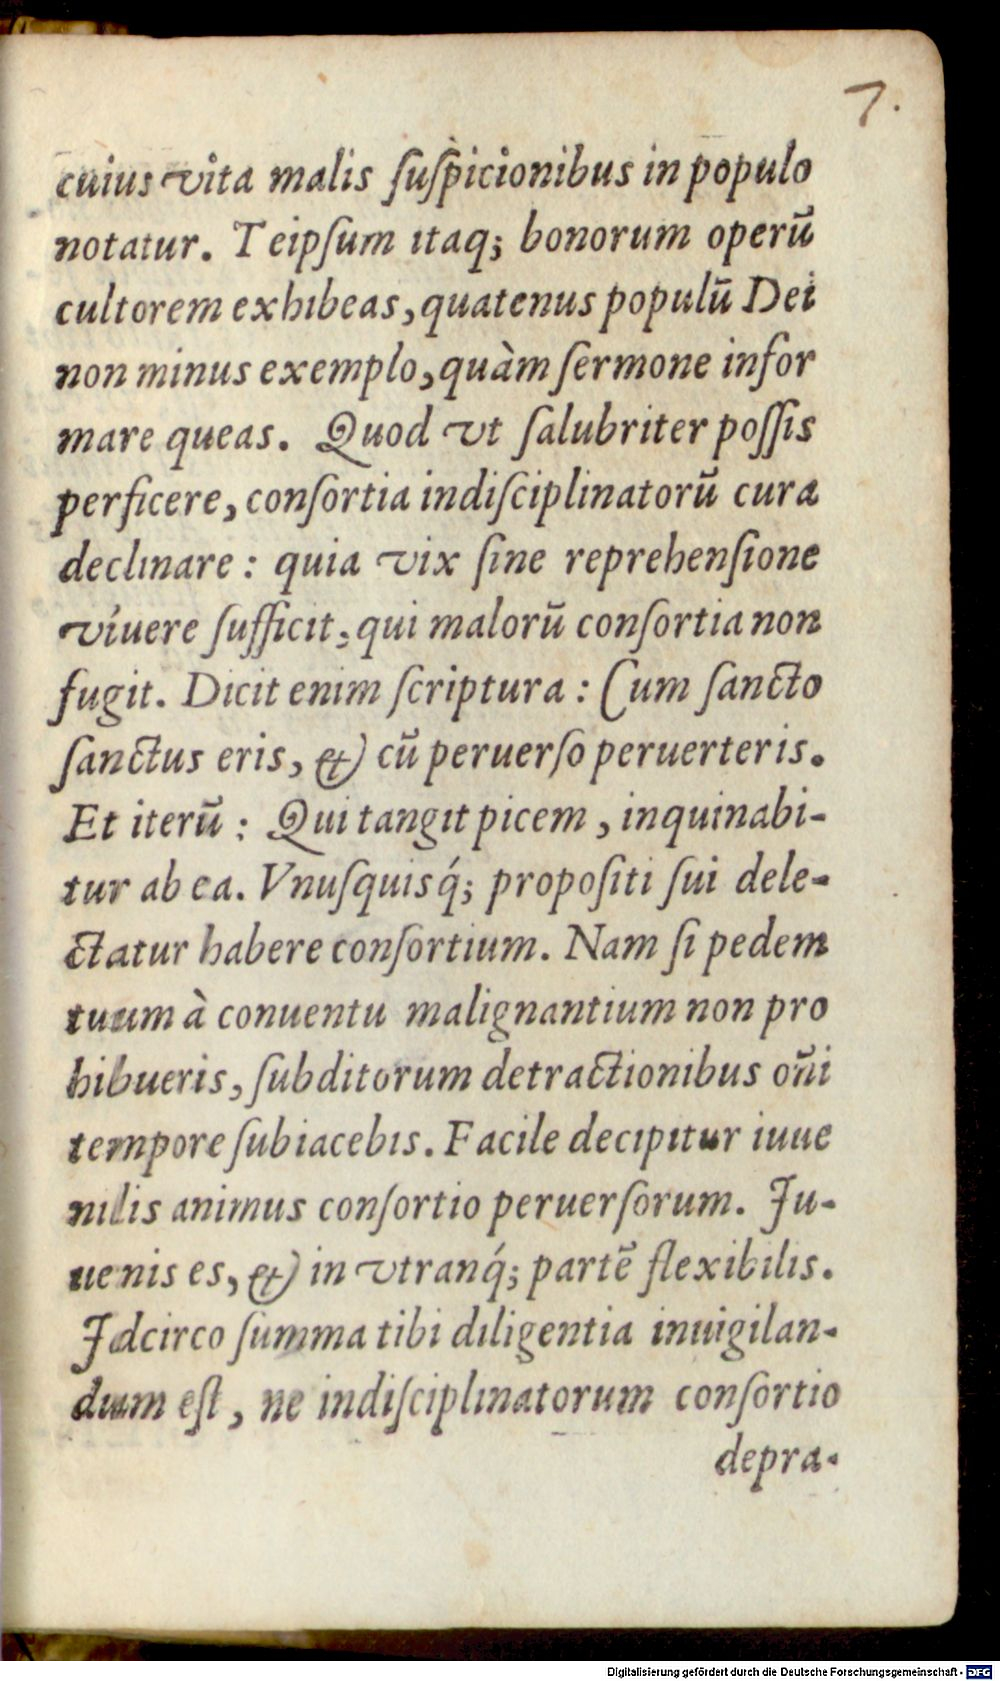 7.
cuius vita malis ſuſpicionibus in populo
notatur. Teipſum itaq; bonorum operū
cultorem exhibeas, quatenus populū Dei
non minus exemplo, quàm ſermone infor
mare queas. Quod vt ſalubriter poſſis
perficere, conſortia indiſciplinatorū cura
declinare: quia vix ſine reprehenſione
viuere ſufficit, qui malorū conſortia non
fugit. Dicit enim ſcriptura: Cum ſancto
ſanctus eris, & cū peruerſo peruerteris.
Et iterū: Qui tangit picem, inquinabi-
tur ab ea. Vnuſquisq́; propoſiti ſui dele-
ctatur habere conſortium. Nam ſi pedem
tuum à conuentu malignantium non pro
hibueris, ſubditorum detractionibus oñi
tempore ſubiacebis. Facile decipitur iuue
nilis animus conſortio peruerſorum. Ju-
uenis es, & in vtranq́; partē flexibilis.
Jdcirco ſumma tibi diligentia inuigilan-
dum eſt, ne indiſciplinatorum conſortio
depra-
Digitalisierung gefördert durch die Deutsche Forschungsgemeinschaft - DFG